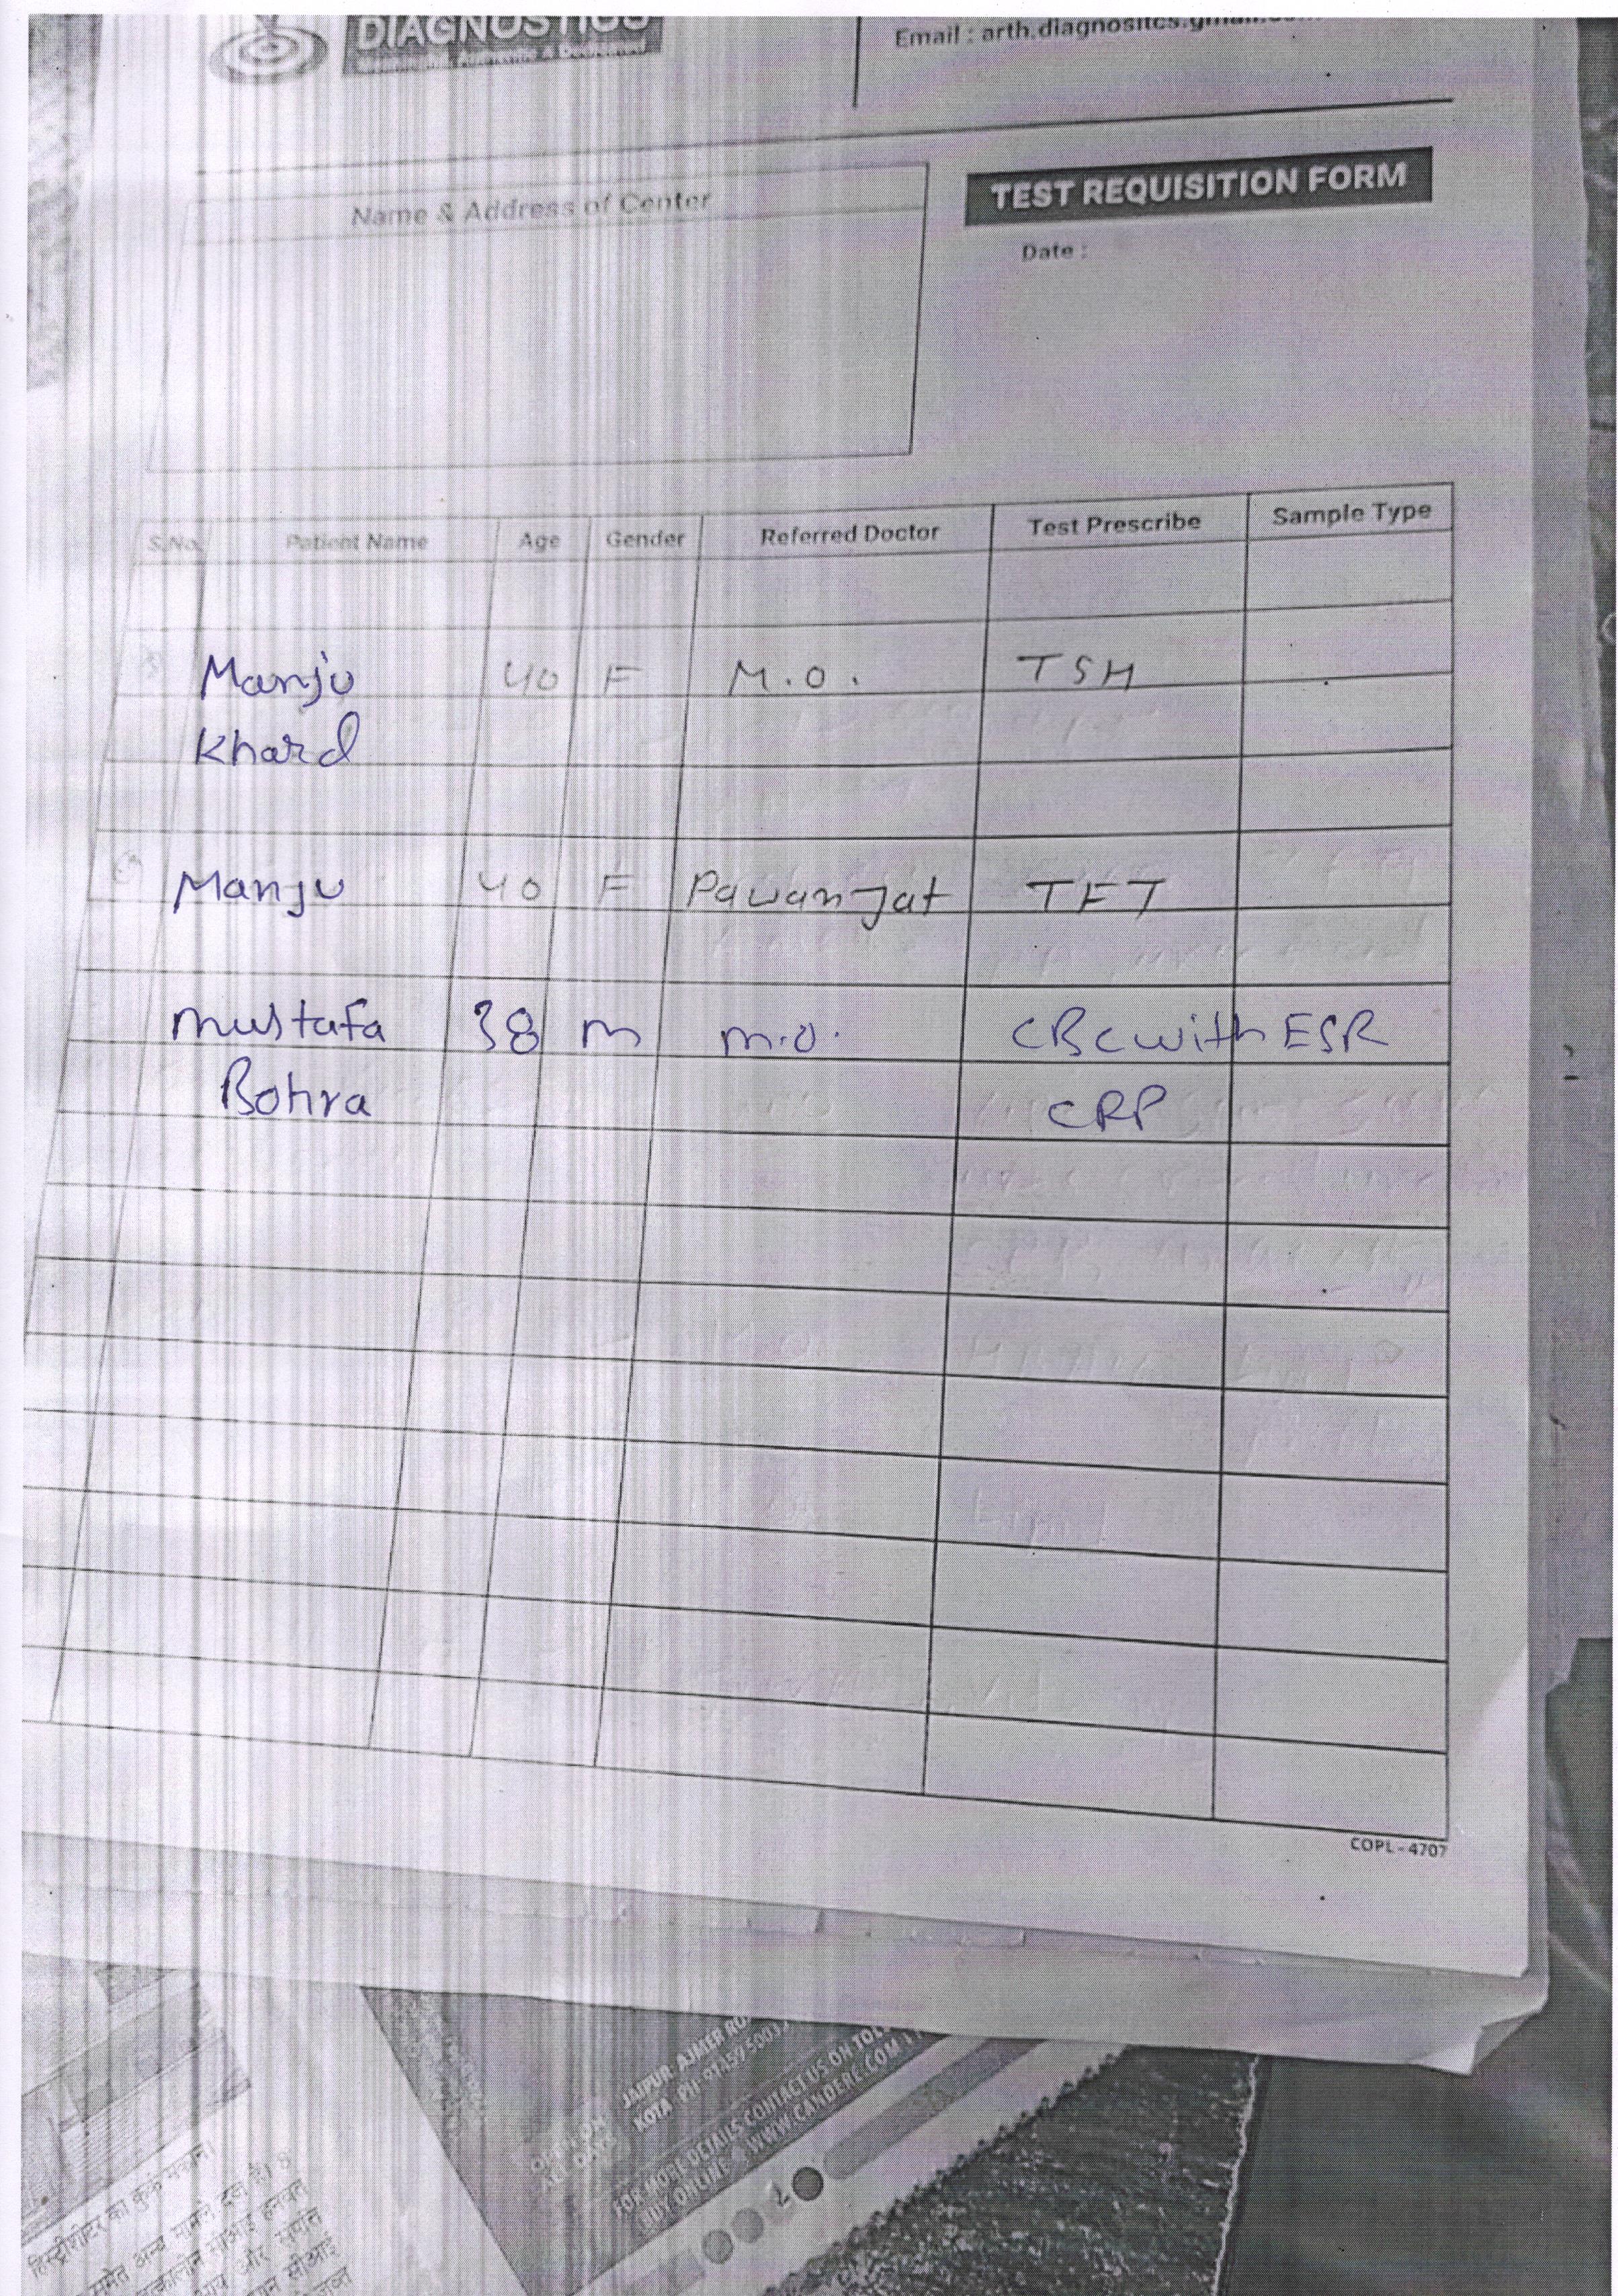 DIAGNOSTICS
Email : arth.diagnositcs.gmail.
Name & Address of Center
TEST REQUISITION FORM
Date :
S.No. Patient Name Age Gender Referred Doctor Test Prescribe Sample Type
Manju 40 F M.O. TSH
Khard
Manju 40 F Pawan Jat TFT
mustafa 38 m m.o. CBC with ESR
Bohra CRP
COPL-4707
JAIPUR: AJMER RO
KOTA PH
FOR MORE DETAILS CONTACT US ON TOL
BUY ONLINE WWW.CANDERE.COM
हिस्ट्रीशीटर का कुर्क मकान।
समेत अन्य मामले दर्ज हैं।
और संपत्ति